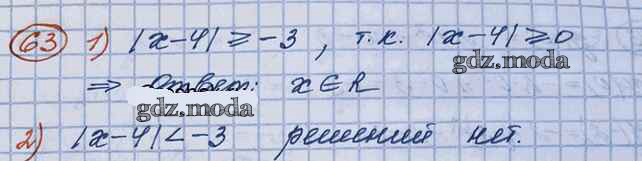 63 1) |x-4| ≥ -3, т.к. |x-4| ≥ 0
gdz.moda
⇒ Ответ: x ∈ R
gdz.moda
2) |x-4| < -3 решений нет.